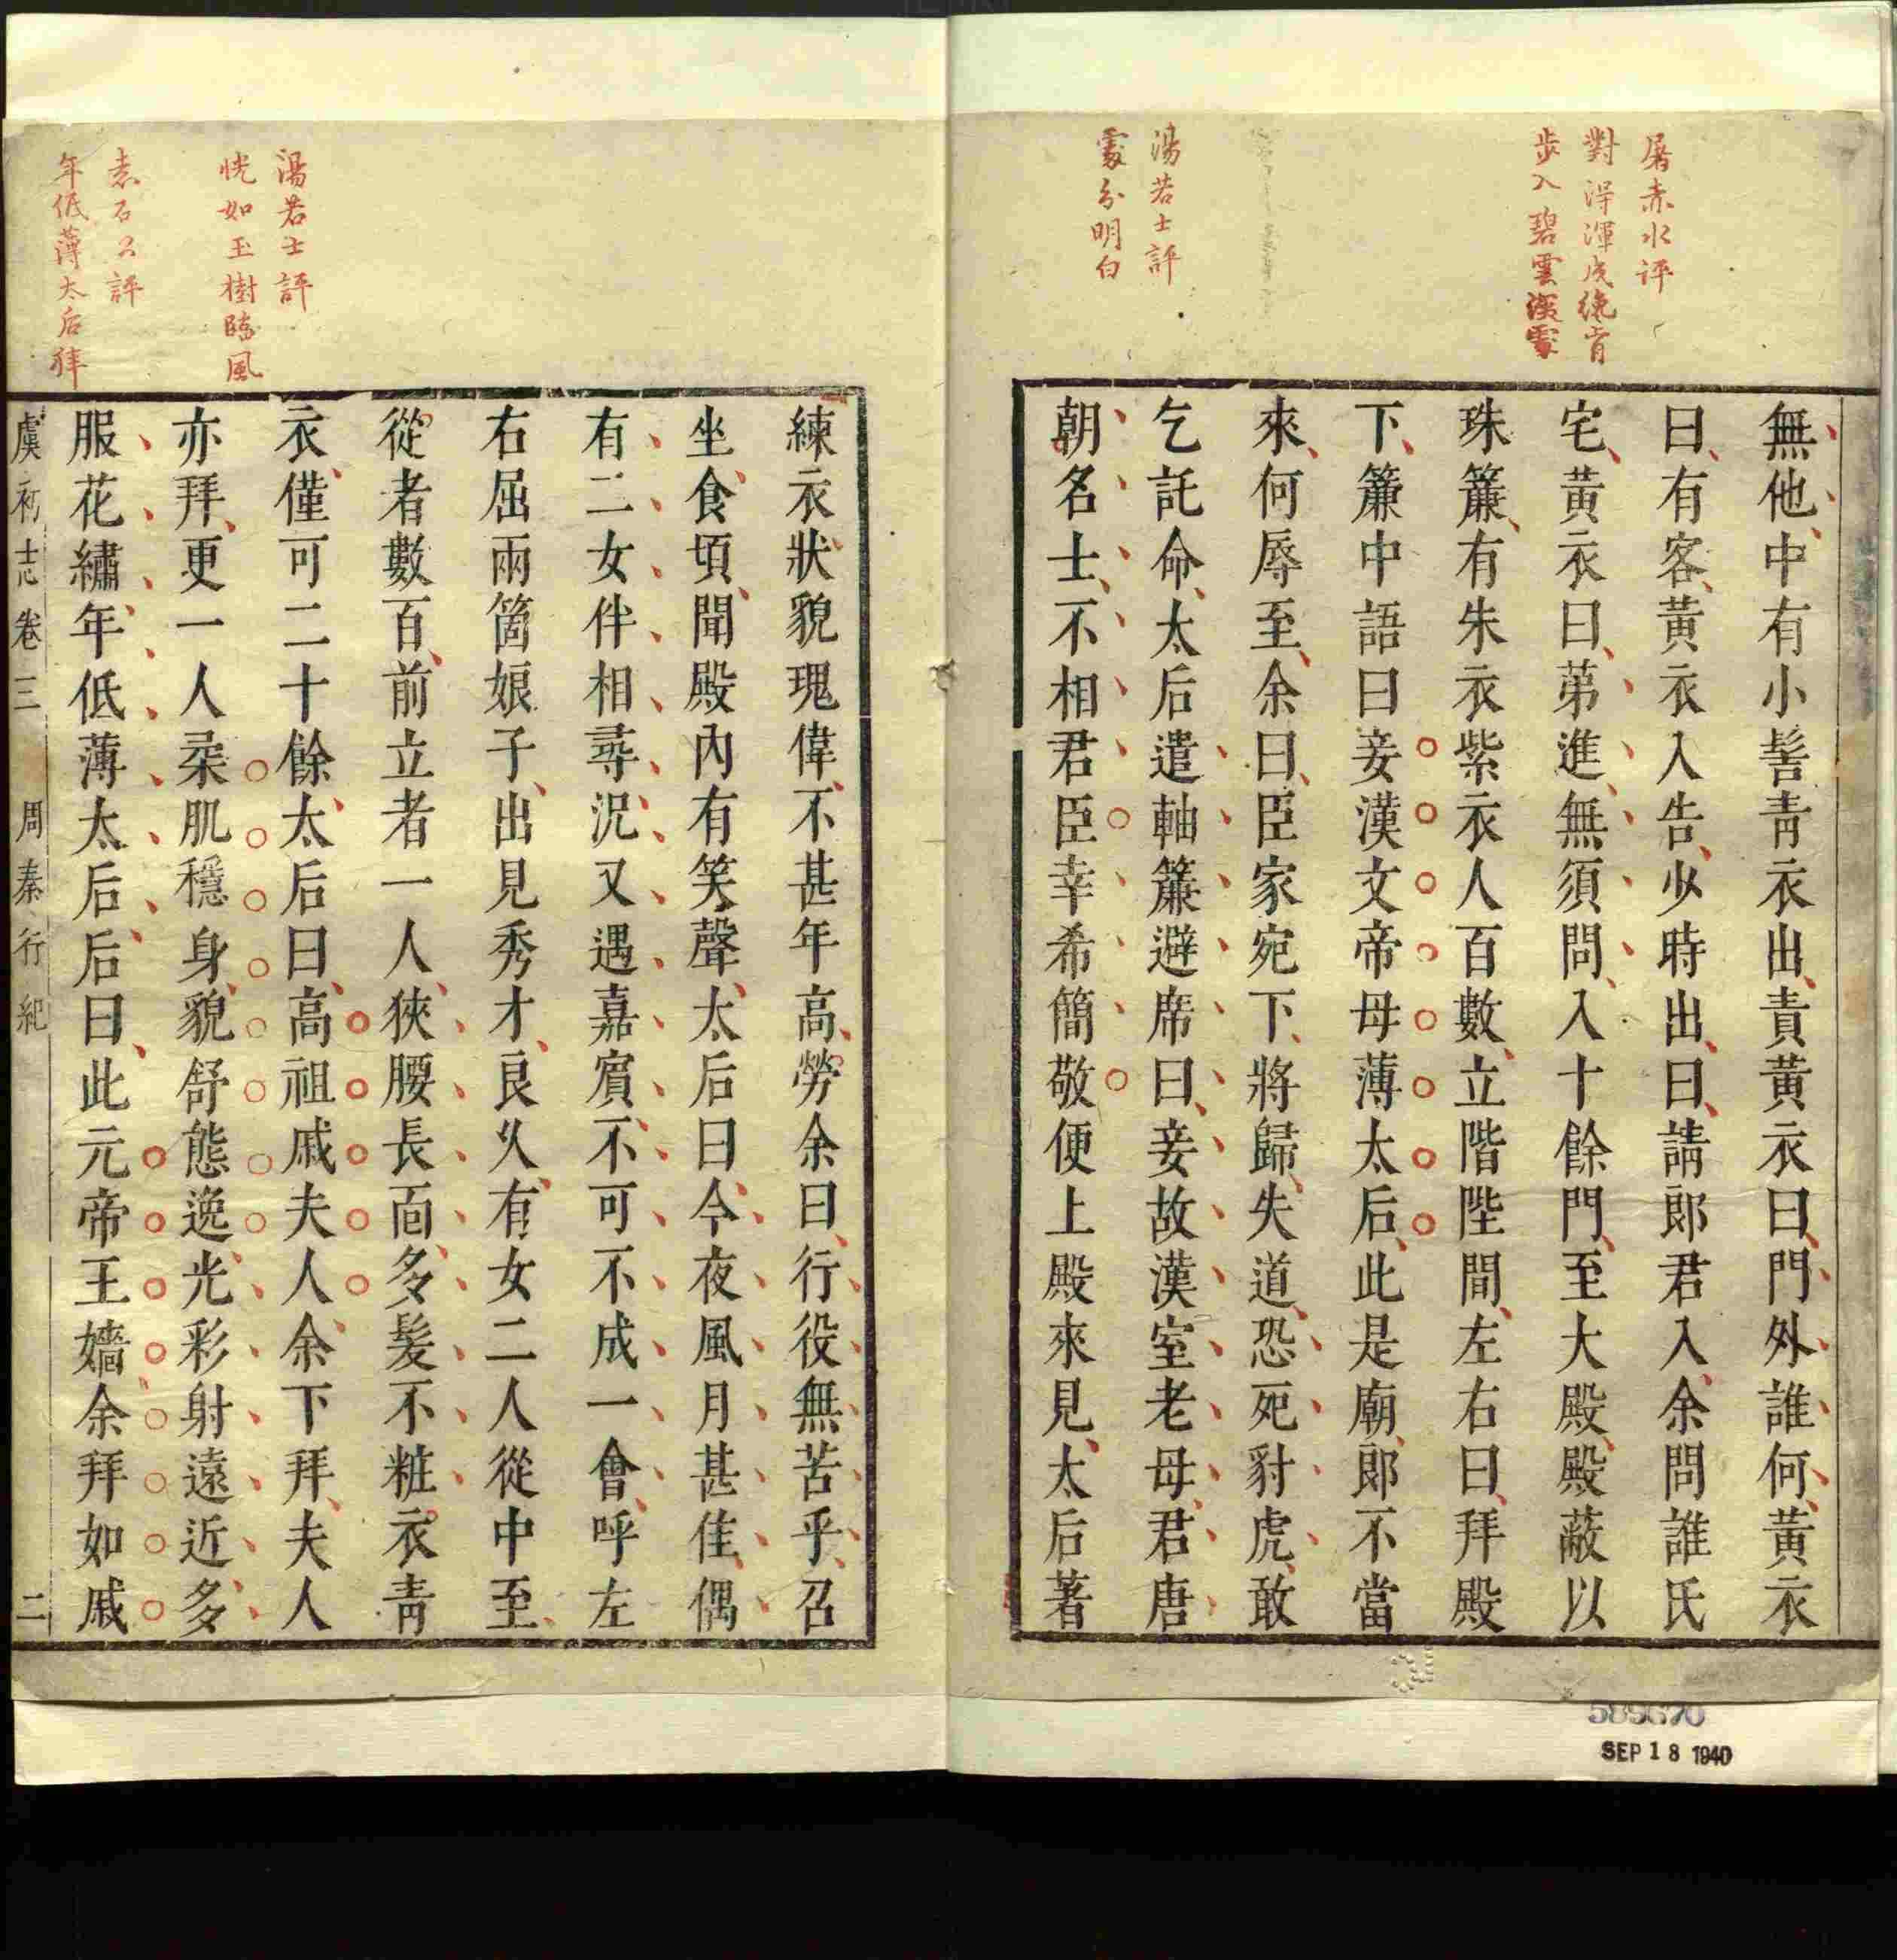 屠赤水評
對得渾成絶肖
步入碧雲深處
湯若士評
處分明白
無他中有小髻青衣出責黃衣曰門外誰何黃衣
曰有客黃衣入告少時出曰請郎君入余問誰氏
宅黃衣曰苐進無須問入十餘門至大殿殿蔽以
珠簾有朱衣紫衣人百數立階陛間左右曰拜殿
下簾中語曰妾漢文帝母薄太后此是廟郎不當
來何辱至余曰臣家宛下將歸失道恐死豺虎敢
乞託命太后遣軸簾避席曰妾故漢室老母君唐
朝名士不相君臣幸希簡敬便上殿來見太后著
湯若士評
恍如玉樹臨風
袁石公評
年低薄太后拜
練衣狀貌瑰偉不甚年高勞余曰行役無苦乎召
坐食頃聞殿內有笑聲太后曰今夜風月甚佳偶
有二女伴相尋況又遇嘉賓不可不成一會呼左
右屈兩箇娘子出見秀才良久有女二人從中至
從者數百前立者一人狹腰長面多髮不粧衣青
衣僅可二十餘太后曰高祖戚夫人余下拜夫人
亦拜更一人柔肌穩身貌舒態逸光彩射遠近多
服花繡年低薄太后后曰此元帝王嬙余拜如戚
虞初志卷三 周秦行紀 二
585670
SEP 18 1940